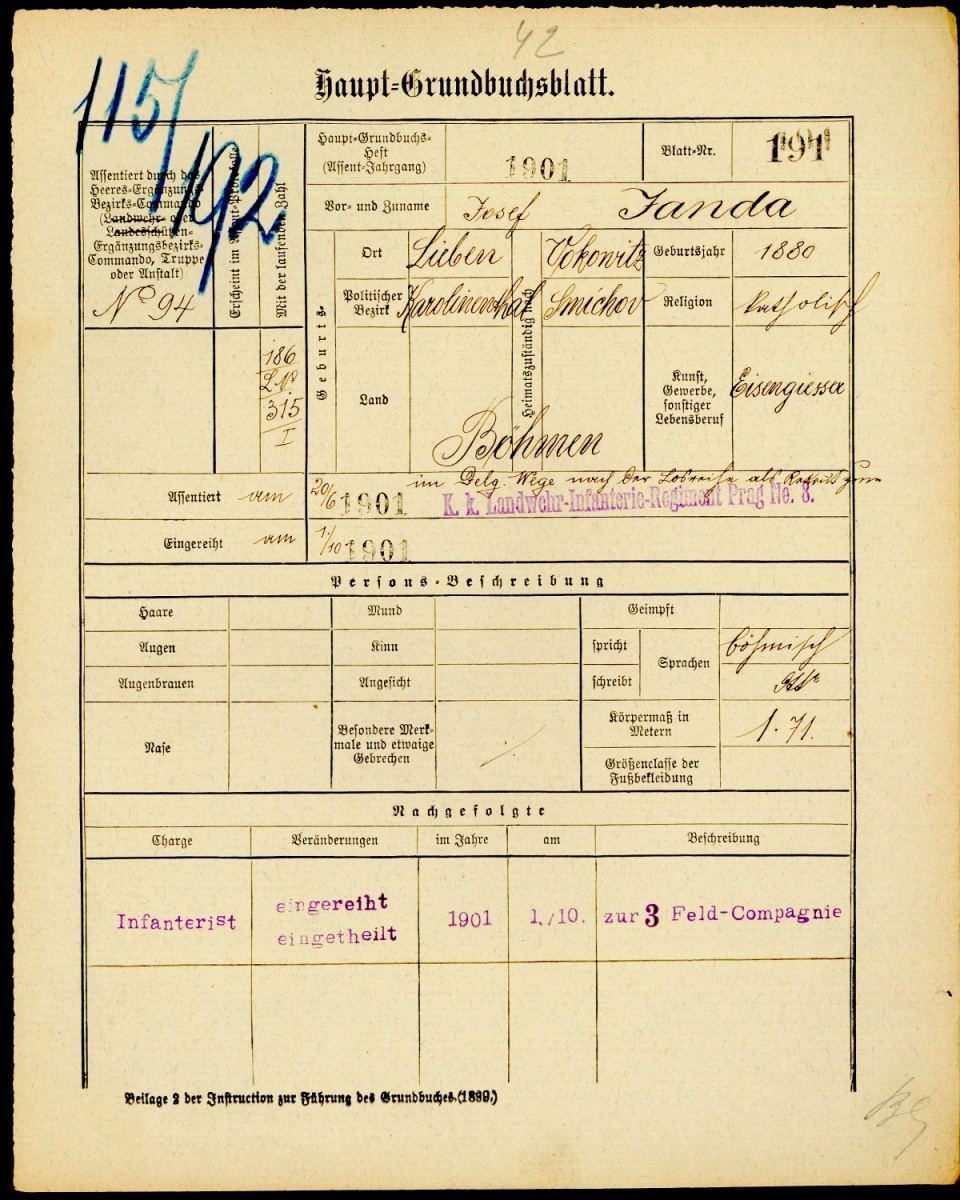 42
Haupt-Grundbuchsblatt.
115/
192.
Assentiert durch das
Heeres-Ergänzungs-
Bezirks-Commando
(Landwehr- oder
Landesschützen-
Ergänzungsbezirks-
Commando, Truppe
oder Anstalt)
No 94
Erscheint im Assent-Protokolle
Mit der laufenden Zahl
186
L. No
315
I
Haupt-Grundbuchs-
Heft
(Assent-Jahrgang)
1901
Blatt-Nr.
191
Vor- und Zuname
Josef Janda
Geburts-
Ort
Lieben
Heimatszuständig nach
Vokowitz
Geburtsjahr
1880
Politischer
Bezirk
Karolinenthal
Smichov
Religion
katholisch
Land
Böhmen
Kunst,
Gewerbe,
sonstiger
Lebensberuf
Eisengiesser
Assentiert am 20/6 1901
im Delg. Wege nach der Losreihe als Rekrut zum
K. k. Landwehr-Infanterie-Regiment Prag No. 8.
Eingereiht am 1./10 1901
Persons-Beschreibung
Haare
Mund
Geimpft
Augen
Kinn
spricht
Sprachen
böhmisch
Augenbrauen
Angesicht
schreibt
Nase
Besondere Merk-
male und etwaige
Gebrechen
Körpermaß in
Metern
1.71.
Größenclasse der
Fußbekleidung
Nachgefolgte
Charge Veränderungen im Jahre am Beschreibung
Infanterist eingereiht
eingetheilt 1901 1./10. zur 3 Feld-Compagnie
Beilage 2 der Instruction zur Führung des Grundbuches (1899.)